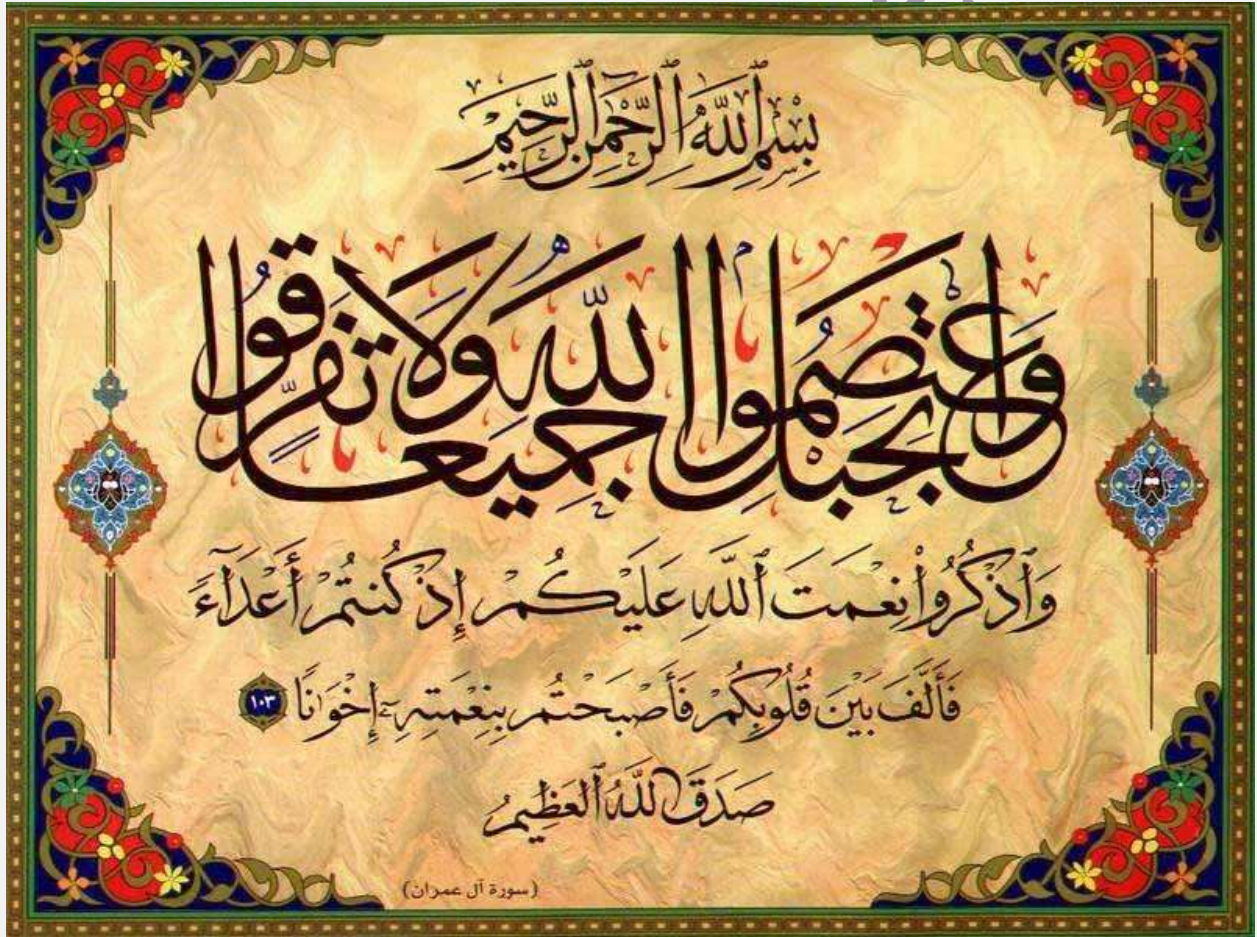 بِسْمِ ٱللَّهِ ٱلرَّحْمَٰنِ ٱلرَّحِيمِ
وَاعْتَصِمُوا بِحَبْلِ اللَّهِ جَمِيعًا وَلَا تَفَرَّقُوا
وَٱذْكُرُوا۟ نِعْمَتَ ٱللَّهِ عَلَيْكُمْ إِذْ كُنتُمْ أَعْدَآءً
فَأَلَّفَ بَيْنَ قُلُوبِكُمْ فَأَصْبَحْتُم بِنِعْمَتِهِۦٓ إِخْوَٰنًا ١٠٣
صَدَقَ اللَّهُ ٱلْعَظِيمُ
(سورة آل عمران)